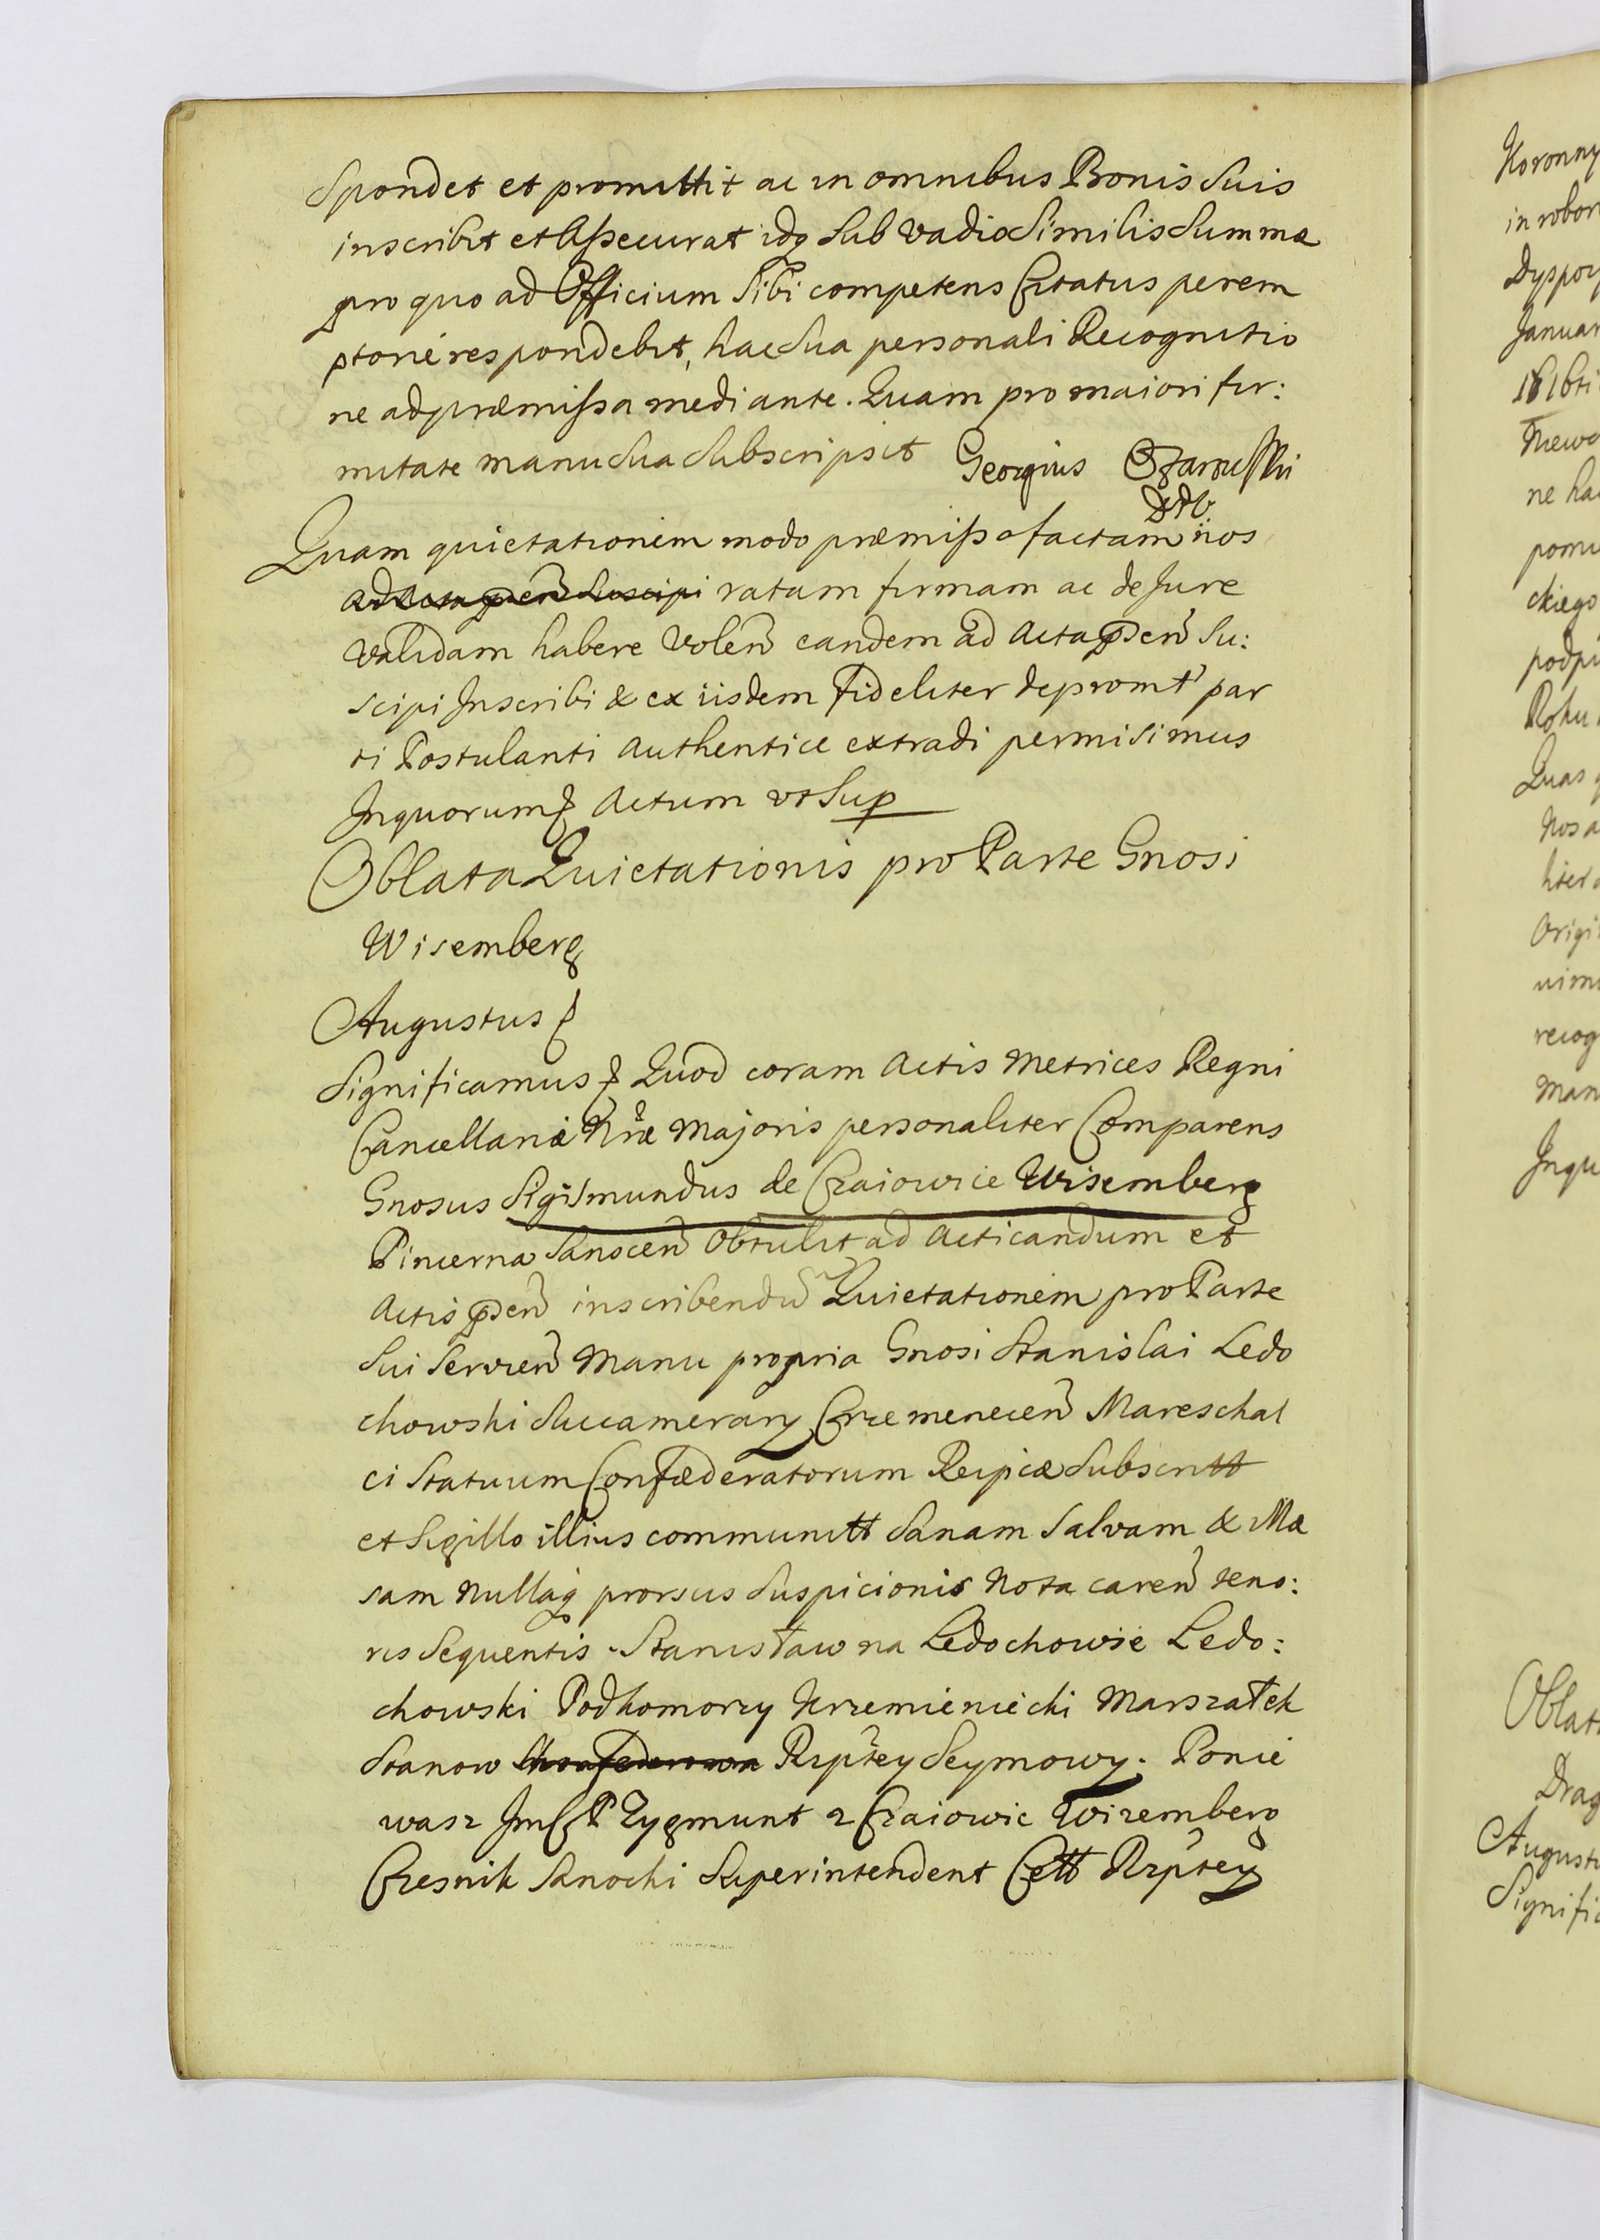 Spondet et promittit ac in omnibus Bonis Suis
inscribit et Assecurat idq Sub Vadio Similis Summæ
pro quo ad Officium Sibi competens Citatus perem
ptorie respondebit, hac Sua personali Recognitio
ne ad præmissa mediante. Quam pro maiori fir:
mitate manu Sua Subscripsit Georgius
Quam quietationem modo præmisso factam nos
ad Acta pñ Suscipi ratam firmam ac de Jure
Validam habere Volen eandem ad Acta pñ Su:
scipi Inscribi & ex iisdem Fideliter depromt par
ti Postulanti Authentice extradi permisimus
Inquorum Actum vt Sup
Oblata Quietationis pro Parte Gnosi
Wisemberg
Augustus
Significamus Quod coram Actis Metrices Regni
Cancellariæ Nræ Majoris personaliter Comparens
Gnosus Sigismundus de Czaiowice Wisemberg
Pincerna Sanocen Obtulit ad Acticandum et
Actis pñ inscribendu Quietationem pro Parte
Sui Servien Manu propria Gnosi Stanislai Ledo
chowski Succamerary Crzemenecen Mareschal
ci Statuum Confæderatorum Reipcæ Subscritt
et Sigillo illius communitt Sanam Salvam & Illæ
sam Nullaq prorsus Suspicionis Nota caren teno:
ris Sequentis. Stanisław na Ledochowie Ledo:
chowski Podkomorzy Krzemieniecki Marszałek
Stanow Rzptey Seymowy. Ponie
wasz Jmć P Zygmunt z Czaiowic Wizemberg
Czesnik Sanocki Superintendent Cett Rzptey